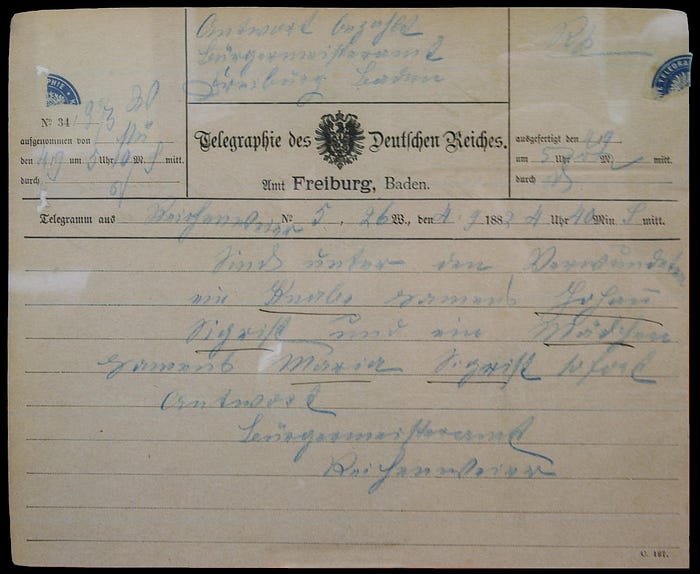 Antwort bezahlt
Bürgermeisteramt
Freiburg Baden
Rp
No 34
aufgenommen von
den 4/9 um 5 Uhr M. mitt.
durch
Telegraphie des Deutschen Reiches.
Amt Freiburg, Baden.
ausgefertigt den 4/9
um 5 Uhr M. mitt.
durch
Telegramm aus Reichenweier No 5, 26 W., den 4. 9 1882 4 Uhr 40 Min. S mitt.
Sind unter den Verwundeten
ein Knabe Namens Johann
Sigrist und ein Mädchen
Namens Maria Sigrist sofort
Antwort
Bürgermeisteramt
Reichenweier
C. 187.